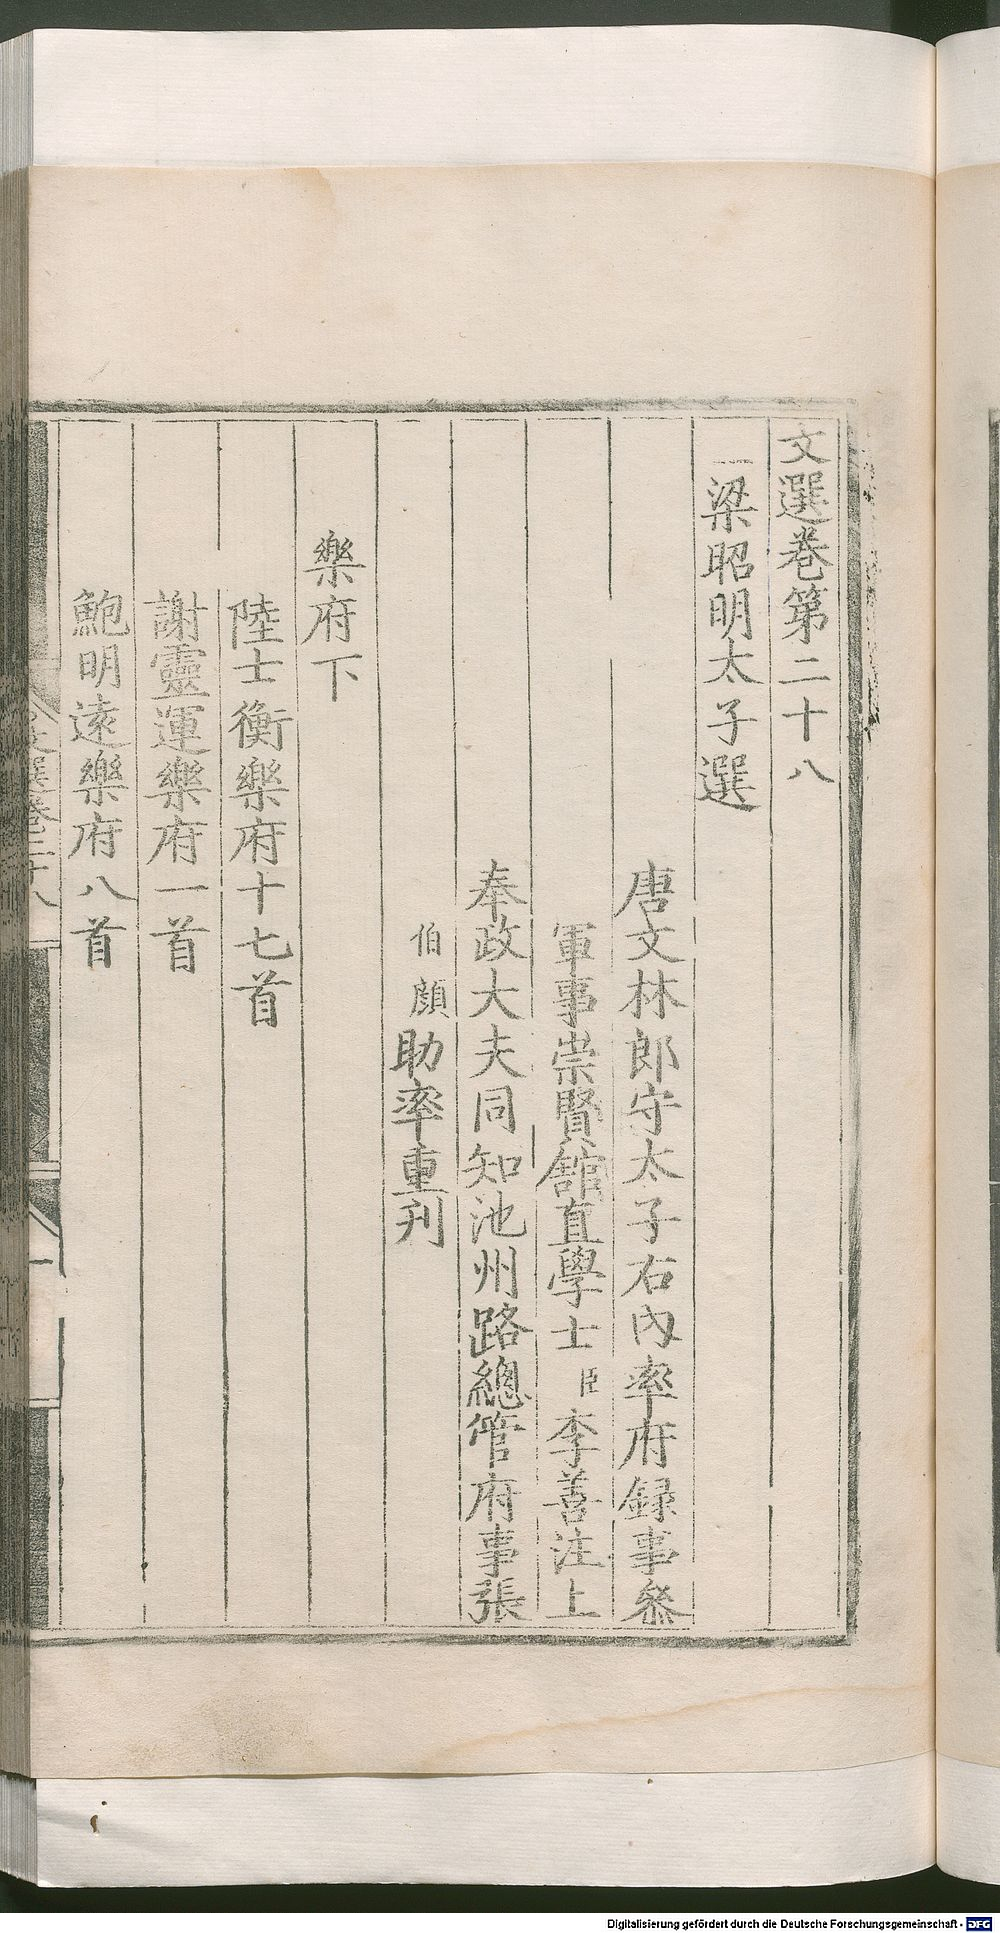 文選卷第二十八
梁昭明太子選
唐文林郎守太子右內率府録事叅
軍事崇賢館直學士臣李善注上
奉政大夫同知池州路總管府事張
伯顔助率重刋
樂府下
陸士衡樂府十七首
謝靈運樂府一首
鮑明遠樂府八首
文選卷二十八
一
Digitalisierung gefördert durch die Deutsche Forschungsgemeinschaft - DFG